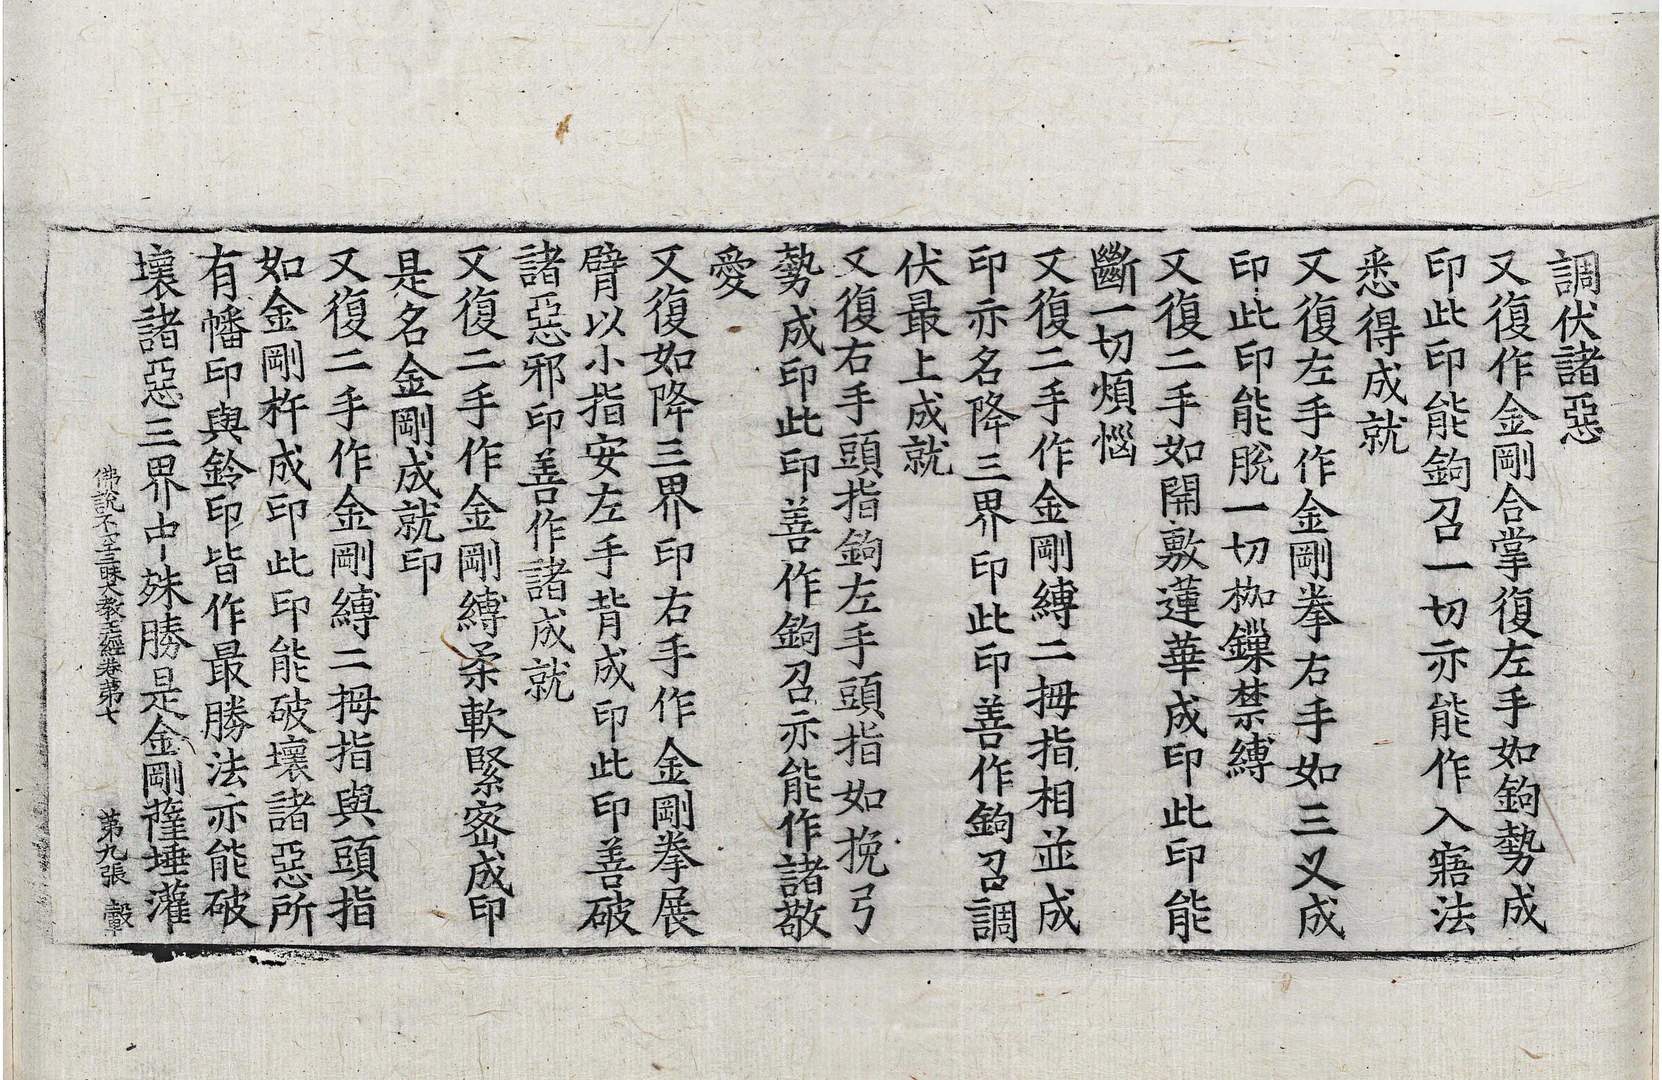 調伏諸惡
又復作金剛合掌復左手如鉤勢成
印此印能鉤召一切亦能作入寤法
悉得成就
又復左手作金剛拳右手如三叉成
印此印能脫一切枷鏁禁縛
又復二手如開敷蓮華成印此印能
斷一切煩惱
又復二手作金剛縛二拇指相並成
印亦名降三界印此印善作鉤召調
伏最上成就
又復右手頭指鉤左手頭指如挽弓
勢成印此印善作鉤召亦能作諸敬
愛
又復如降三界印右手作金剛拳展
臂以小指安左手背成印此印善破
諸惡邪印善作諸成就
又復二手作金剛縛柔軟緊密成印
是名金剛成就印
又復二手作金剛縛二拇指與頭指
如金剛杵成印此印能破壞諸惡所
有幡印與鈴印皆作最勝法亦能破
壞諸惡三界中殊勝是金剛薩埵灌
佛說不空三昧大教王經卷第七 第九張 轂